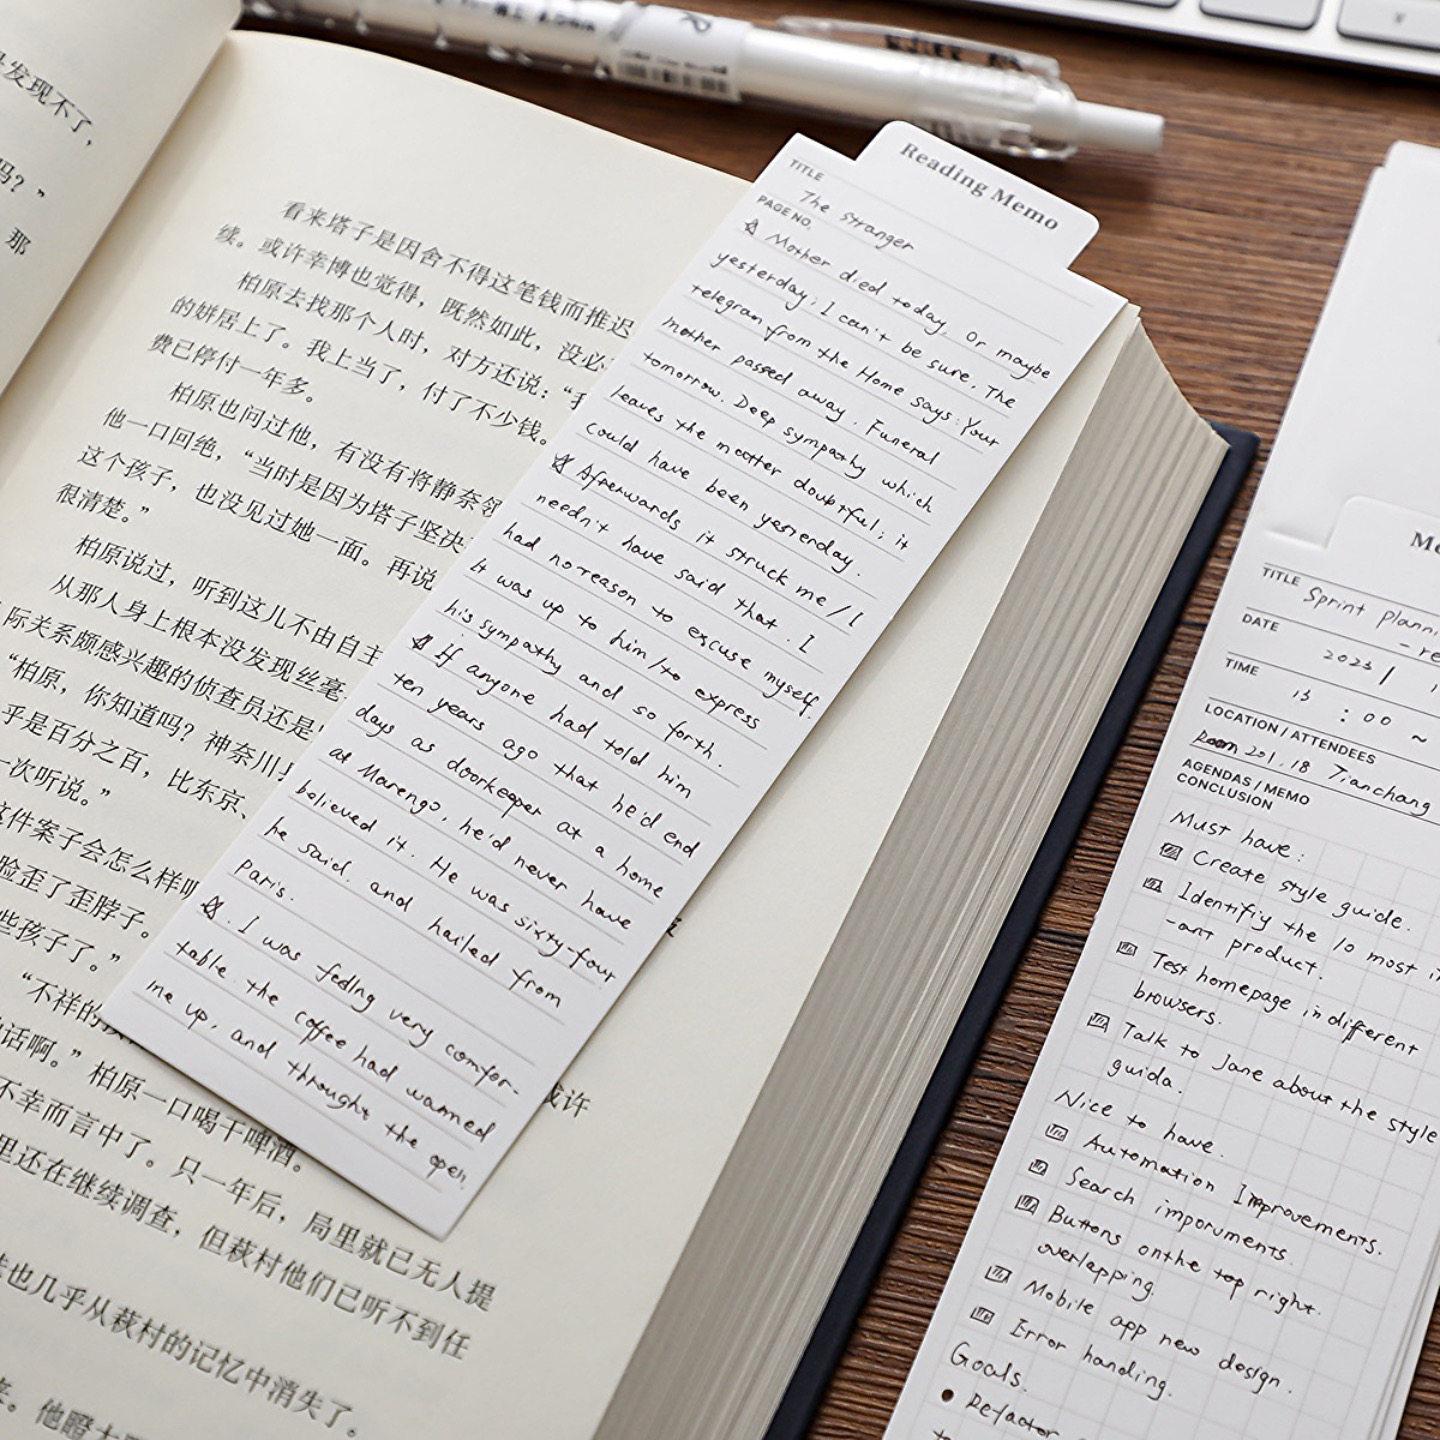 发现不了，
吗？”
那
看来塔子是因舍不得这笔钱而推迟
续。或许幸博也觉得，既然如此，没必
柏原去找那个人时，对方还说：“我
的姘居上了。我上当了，付了不少钱。
费已停付一年多。
柏原也问过他，有没有将静奈领
他一口回绝，“当时是因为塔子坚决
这个孩子，也没见过她一面。再说
很清楚。”
柏原说过，听到这儿不由自主
从那人身上根本没发现丝毫
际关系颇感兴趣的侦查员还是
“柏原，你知道吗？神奈川县
乎是百分之百，比东京、
一次听说。”
这件案子会怎么样呢
脸歪了歪脖子。
些孩子了。”
“不祥的
话啊。”柏原一口喝干啤酒。
或许
不幸而言中了。只一年后，局里就已无人提
里还在继续调查，但萩村他们已听不到任
也几乎从萩村的记忆中消失了。
他瞪大
Reading Memo
TITLE
The stranger
PAGE NO.
☆ Mother died today. Or maybe
yesterday; I can't be sure. The
telegram from the Home says: Your
mother passed away. Funeral
tomorrow. Deep sympathy which
leaves the matter doubtful; it
could have been yesterday.
☆ Afterwards it struck me / I
needn't have said that. I
had no reason to excuse myself.
It was up to him / to express
his sympathy and so forth.
☆ If anyone had told him
ten years ago that he'd end
days as doorkeeper at a home
at Marengo, he'd never have
believed it. He was sixty-four
he said. and hailed from
Paris.
☆. I was feeling very comfor-
table. the coffee had warmed
me up, and throught the open.
TITLE
Sprint planni
- re
DATE
2023 / 1
TIME
13 : 00 ~
LOCATION / ATTENDEES
Room 201.18 Tianchang
AGENDAS / MEMO
CONCLUSION
Must have:
Create style guide.
Identifiy the 10 most i
-ant product.
Test homepage in different
browsers.
Talk to Jane about the style
guida.
Nice to have.
Automation Improvements.
Search imporuments.
Buttons on the top right.
overlapping.
Mobile app new design.
Error handing.
Goals.
• Refactor